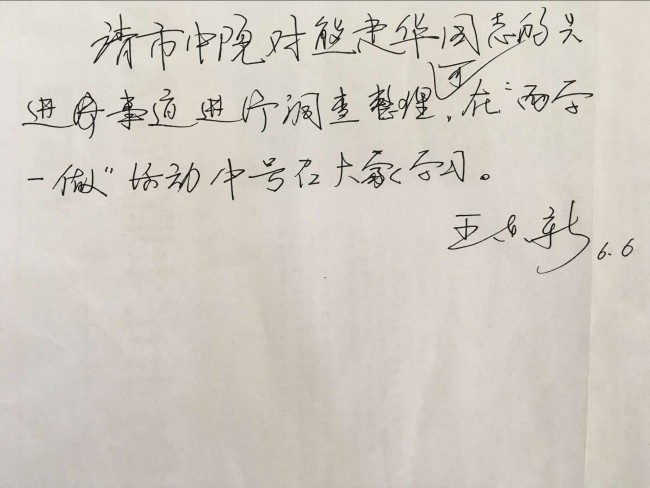 请市中院对熊建华同志的先
进事迹进行调查整理,可在“两学
一做”活动中号召大家学习。
王
6.6